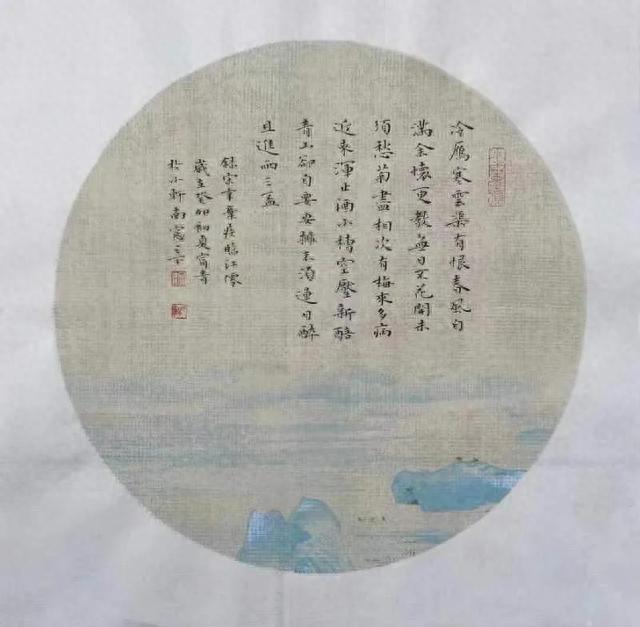 冷雁寒雲渠有恨春風自
滿余懷更教無日不花開未
須愁菊盡相次有梅來多病
近來渾止酒小槽空壓新醅
青山卻自要安排不須連日醉
且進兩三盃
録宋辛棄疾臨江僊
歲在癸卯初夏
於小軒南窗